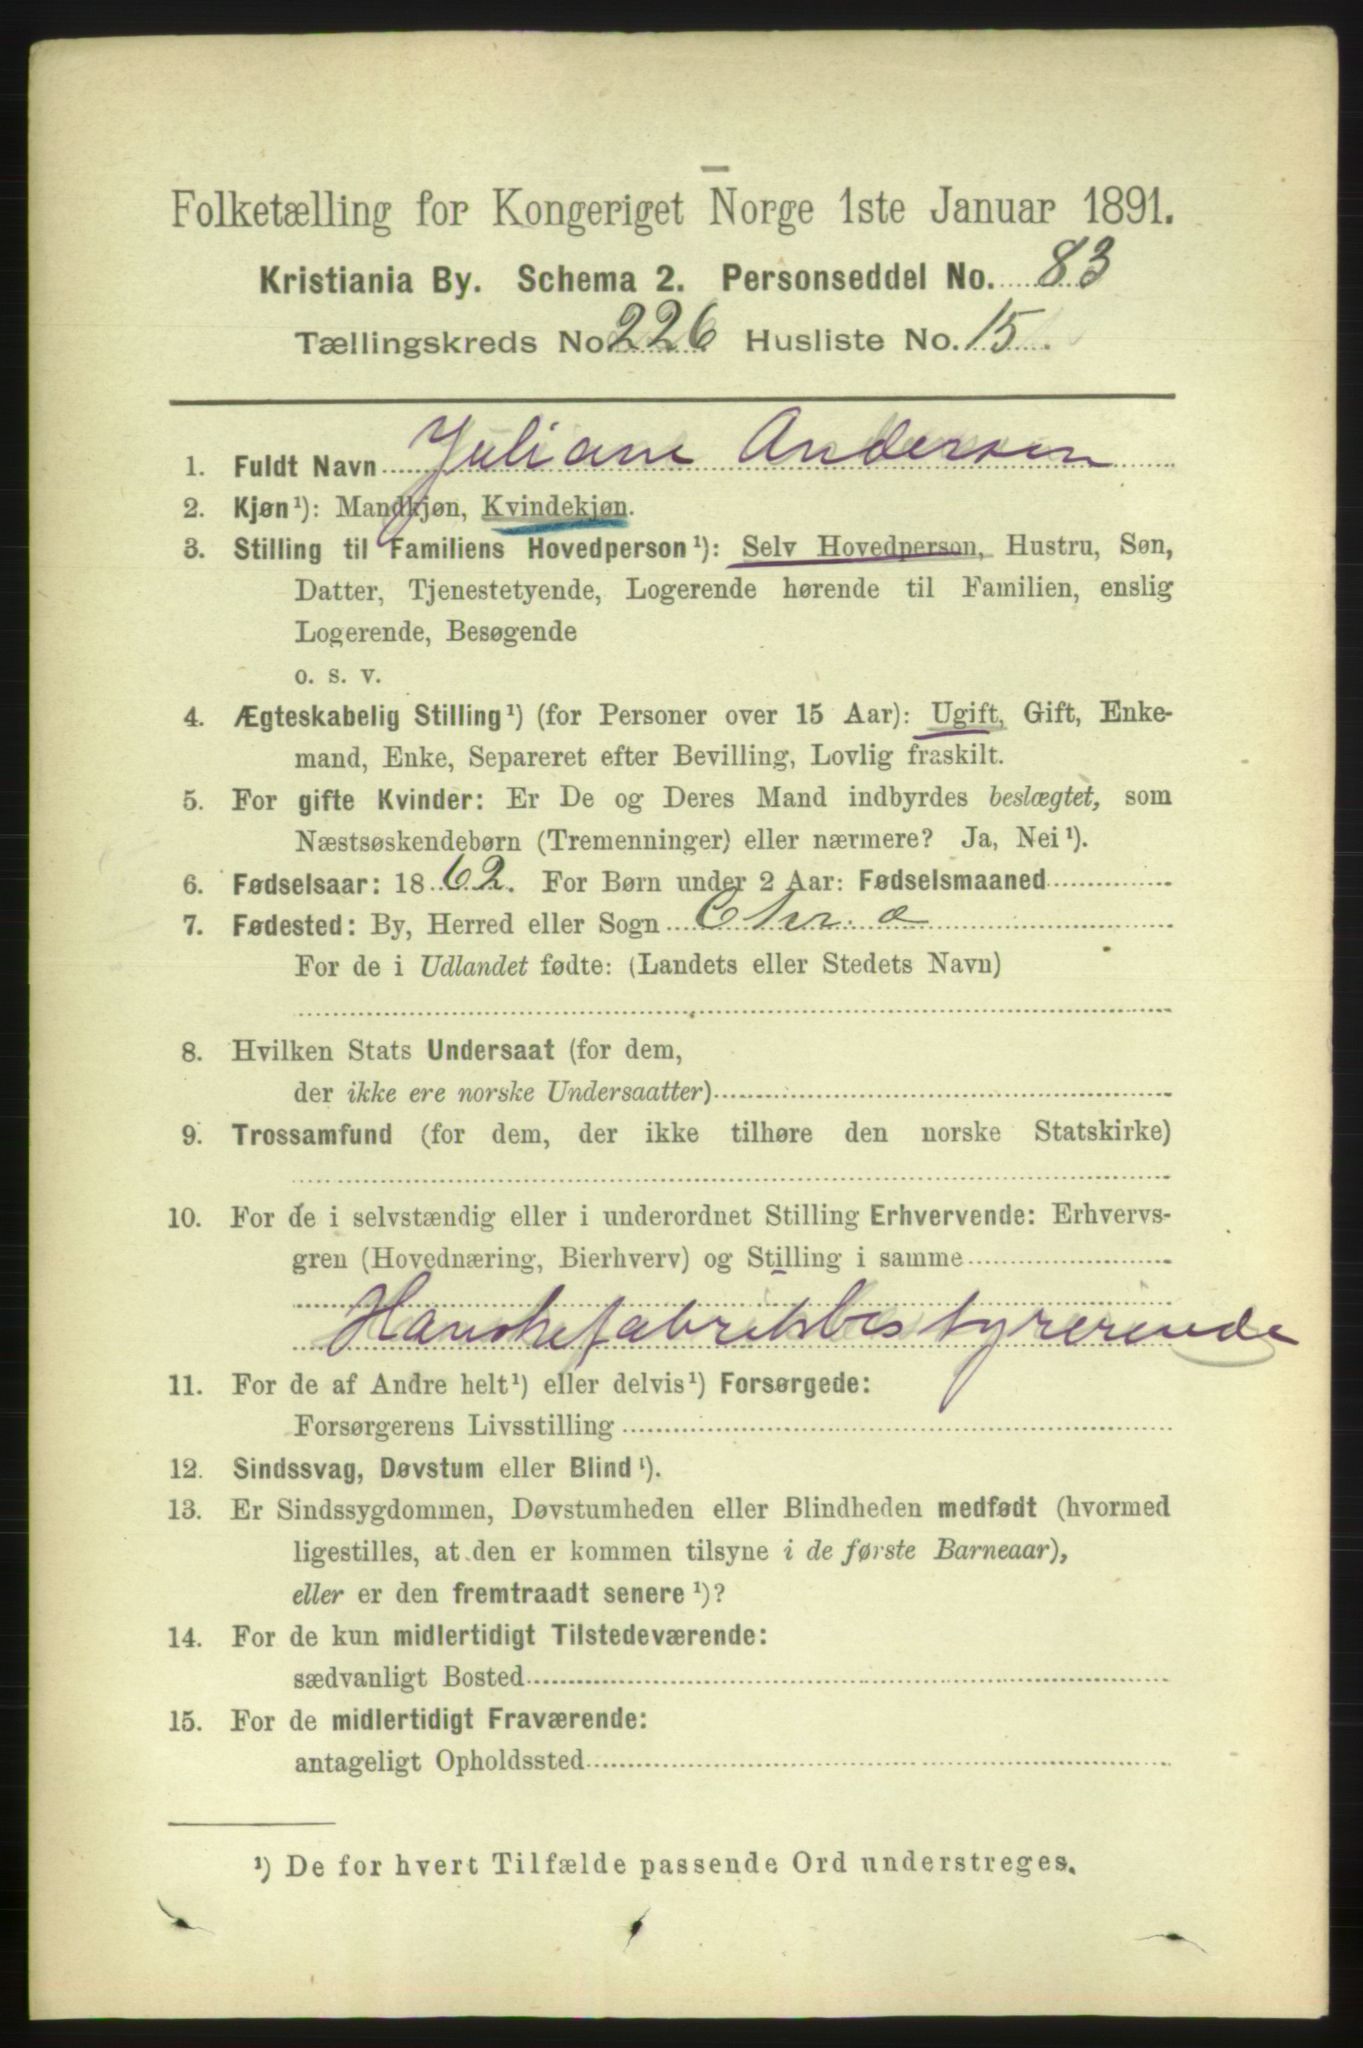 Folketælling for Kongeriget Norge 1ste Januar 1891.
Kristiania By. Schema 2. Personseddel No. 83
Tællingskreds No. 226 Husliste No. 15.
1. Fuldt Navn Juliane Andersen
2. Kjøn¹): Mandkjøn, Kvindekjøn.
3. Stilling til Familiens Hovedperson¹): Selv Hovedperson, Hustru, Søn,
Datter, Tjenestetyende, Logerende hørende til Familien, enslig
Logerende, Besøgende
o. s. v.
4. Ægteskabelig Stilling¹) (for Personer over 15 Aar): Ugift, Gift, Enke-
mand, Enke, Separeret efter Bevilling, Lovlig fraskilt.
5. For gifte Kvinder: Er De og Deres Mand indbyrdes beslægtet, som
Næstsøskendebørn (Tremenninger) eller nærmere? Ja, Nei¹).
6. Fødselsaar: 1862. For Børn under 2 Aar: Fødselsmaaned
7. Fødested: By, Herred eller Sogn Chr. a
For de i Udlandet fødte: (Landets eller Stedets Navn)
8. Hvilken Stats Undersaat (for dem,
der ikke ere norske Undersaatter)
9. Trossamfund (for dem, der ikke tilhøre den norske Statskirke)
10. For de i selvstændig eller i underordnet Stilling Erhvervende: Erhvervs-
gren (Hovednæring, Bierhverv) og Stilling i samme
Hanskefabrikbestyrerende
11. For de af Andre helt¹) eller delvis¹) Forsørgede:
Forsørgerens Livsstilling
12. Sindssvag, Døvstum eller Blind¹).
13. Er Sindssygdommen, Døvstumheden eller Blindheden medfødt (hvormed
ligestilles, at den er kommen tilsyne i de første Barneaar),
eller er den fremtraadt senere¹)?
14. For de kun midlertidigt Tilstedeværende:
sædvanligt Bosted
15. For de midlertidigt Fraværende:
antageligt Opholdssted
¹) De for hvert Tilfælde passende Ord understreges.